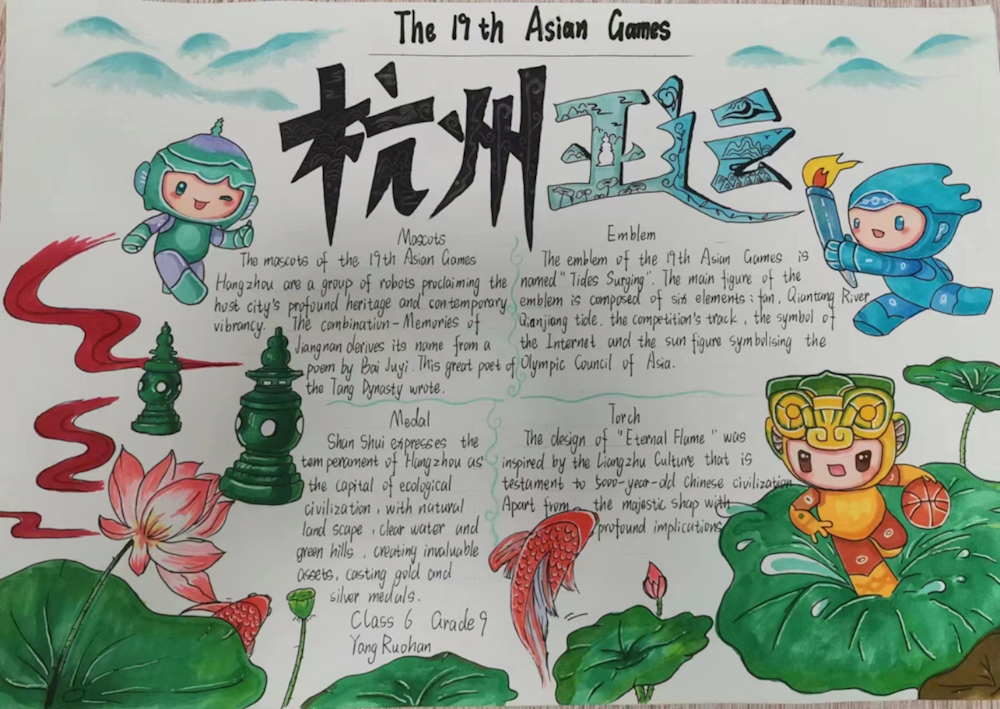 The 19th Asian Games
杭州亚运
Mascots
The mascots of the 19th Asian Games
Hangzhou are a group of robots proclaiming the
host city's profound heritage and contemporary
vibrancy. The combination-Memories of
Jiangnan derives its name from a
poem by Bai Juyi. This great poet of
the Tang Dynasty wrote.
Emblem
The emblem of the 19th Asian Games is
named "Tides Surging". The main figure of the
emblem is composed of six elements: fan, Qiantang River
Qianjiang tide. the competition's track, the symbol of
the Internet and the sun figure symbolising the
Olympic Council of Asia.
Medal
Shan Shui expresses the
temperament of Hangzhou as
the capital of ecological
civilization, with natural
land scape, clear water and
green hills. creating invaluable
assets, casting gold and
silver medals.
Class 6 Grade 9
Yang Ruohan
Torch
The design of "Eternal Flame" was
inspired by the Liangzhu Culture that is
testament to 5000-year-old Chinese civilization
Apart from the majestic shap with
profound implications